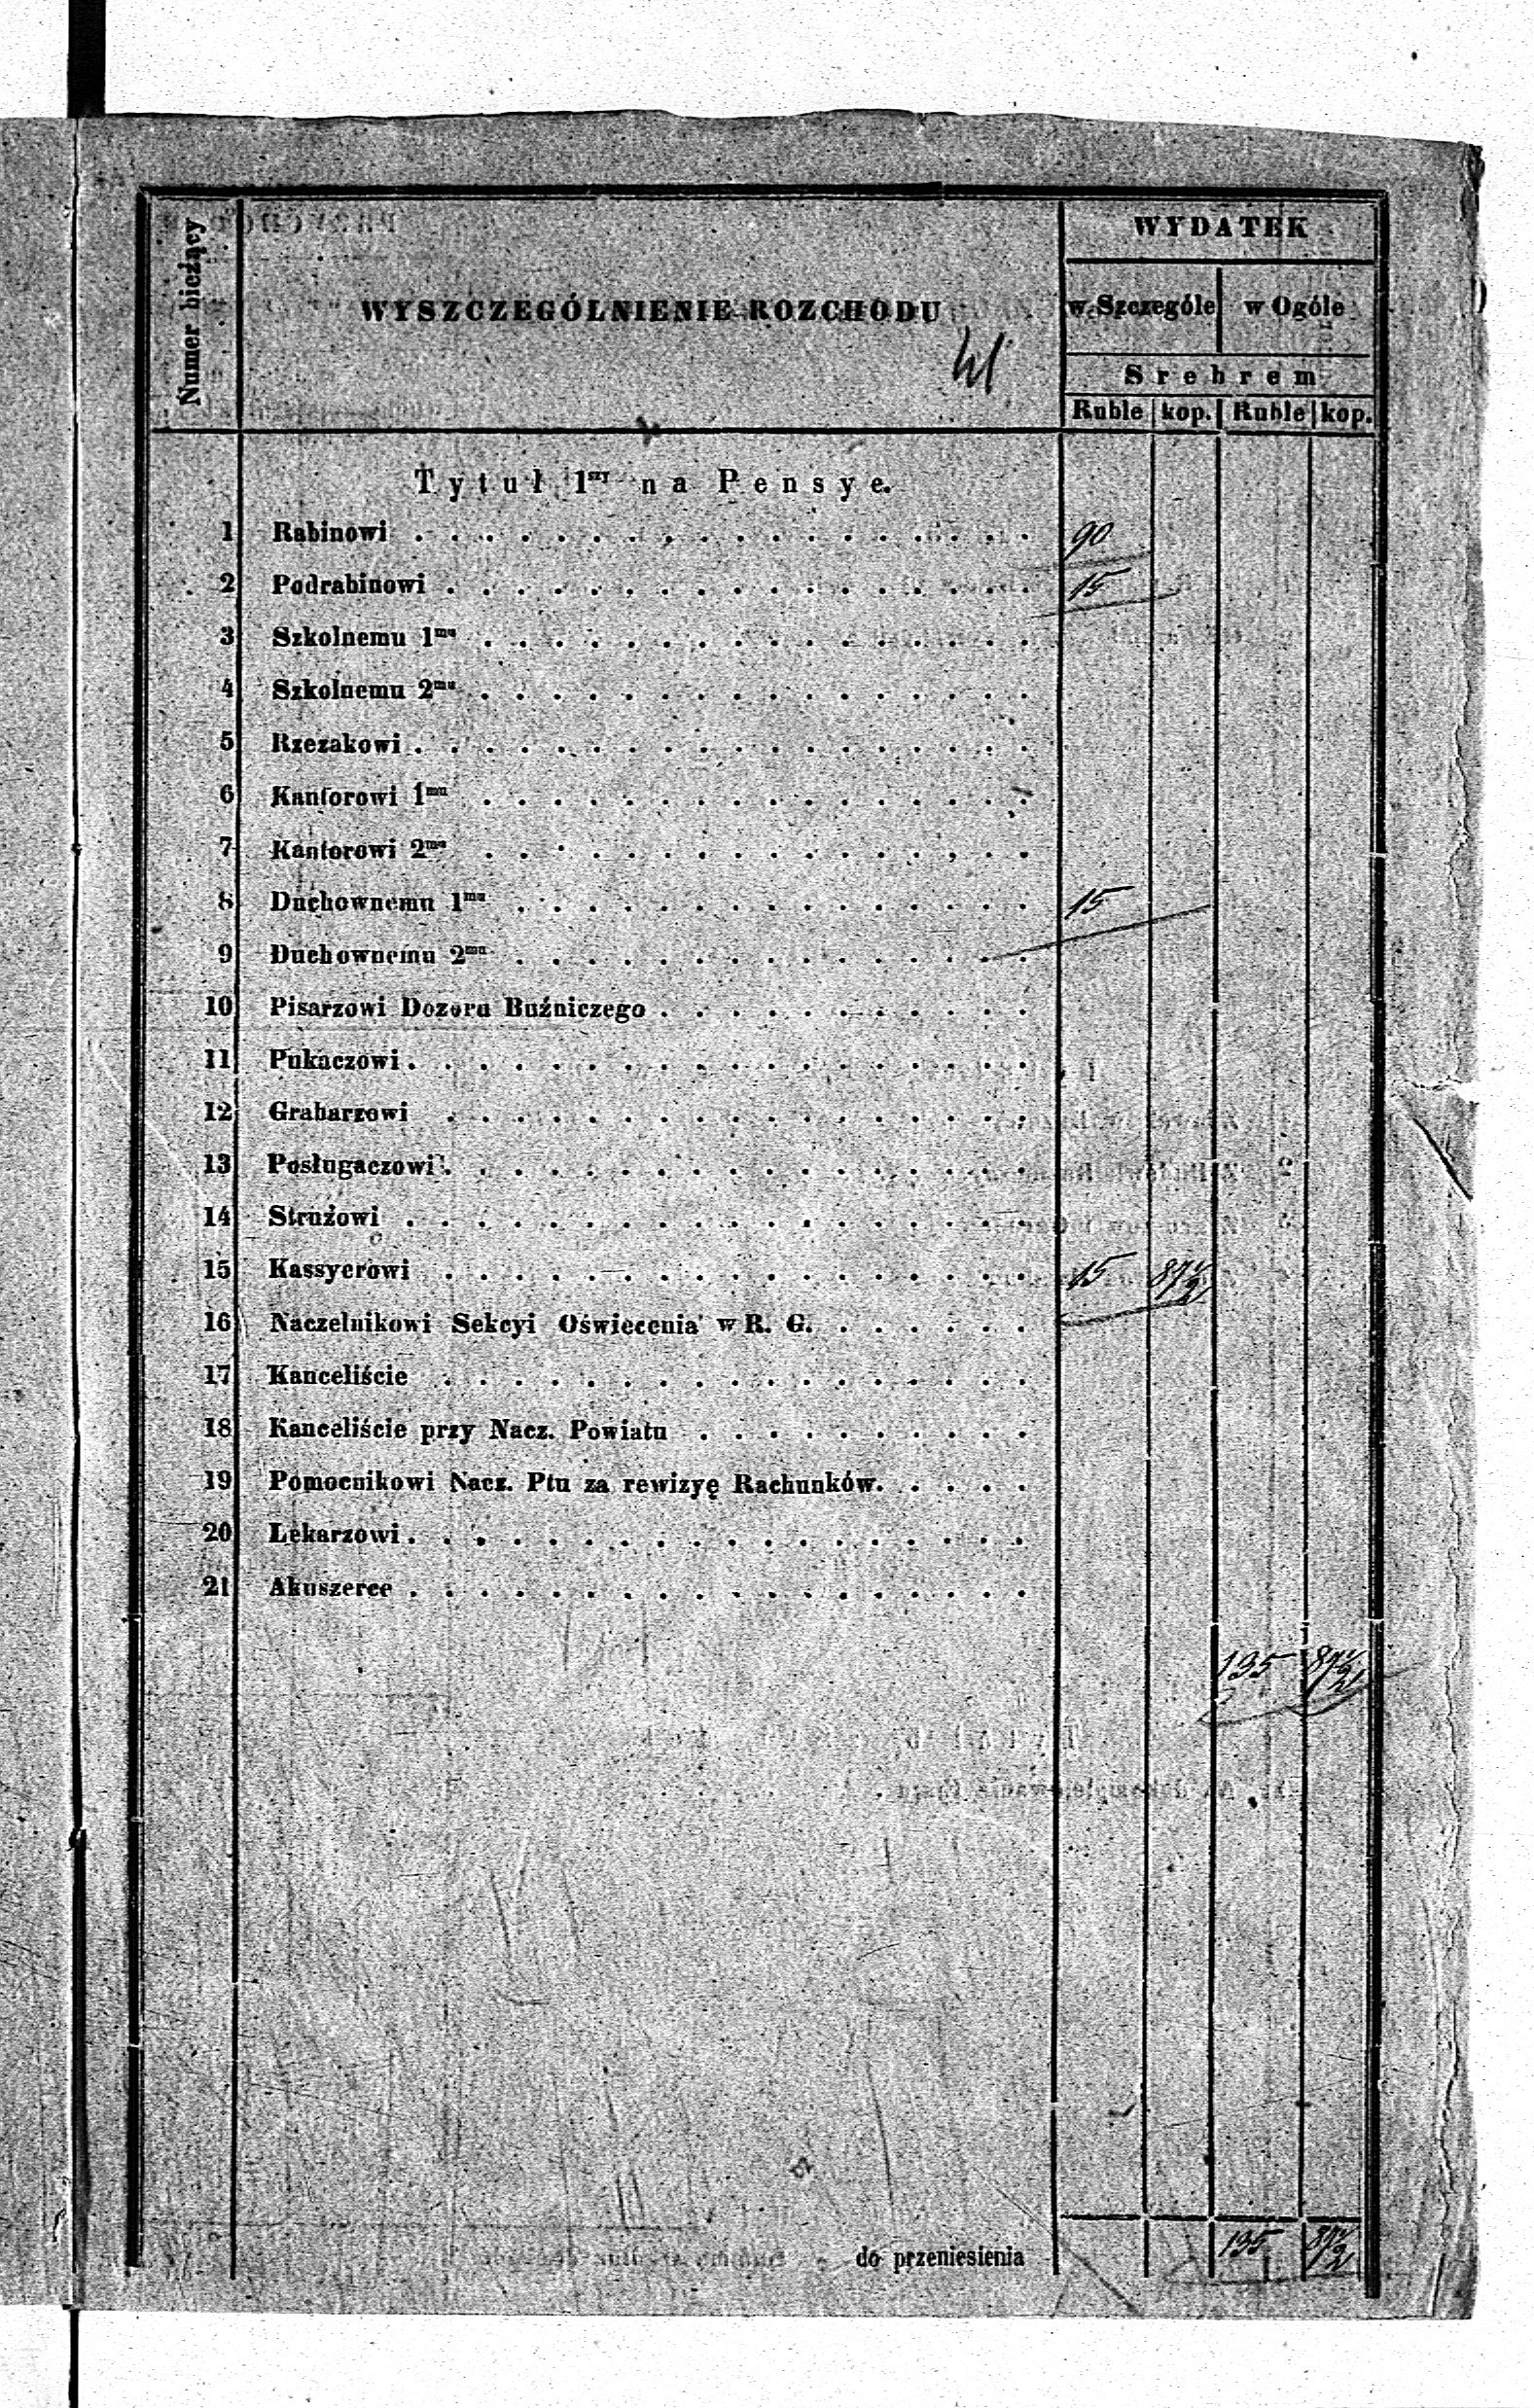 Numer bieżący
WYSZCZEGÓLNIENIE ROZCHODU
WYDATEK
w Szczególe w Ogóle
Srebrem
Ruble kop. Ruble kop.
Tytuł 1szy na Pensye.
1 Rabinowi . . . . . . . . . . . . . . . . . . 90
2 Podrabinowi . . . . . . . . . . . . . . . . . 15
3 Szkolnemu 1mu . . . . . . . . . . . . . . . .
4 Szkolnemu 2mu . . . . . . . . . . . . . . . .
5 Rzezakowi . . . . . . . . . . . . . . . . . .
6 Kantorowi 1mu . . . . . . . . . . . . . . . .
7 Kantorowi 2mu . . . . . . . . . . . . . . . .
8 Duchownemu 1mu . . . . . . . . . . . . . . . 15
9 Duchownemu 2mu . . . . . . . . . . . . . . .
10 Pisarzowi Dozoru Buźniczego . . . . . . . . . . .
11 Pukaczowi . . . . . . . . . . . . . . . . . .
12 Grabarzowi . . . . . . . . . . . . . . . . .
13 Posługaczowi . . . . . . . . . . . . . . . . .
14 Strużowi . . . . . . . . . . . . . . . . . .
15 Kassyerowi . . . . . . . . . . . . . . . . . 15 87½
16 Naczelnikowi Sekcyi Oświecenia w R. G. . . . . . .
17 Kanceliście . . . . . . . . . . . . . . . . .
18 Kanceliście przy Nacz. Powiatu . . . . . . . . . .
19 Pomocnikowi Nacz. Ptu za rewizyę Rachunków. . . . .
20 Lekarzowi . . . . . . . . . . . . . . . . . .
21 Akuszerce . . . . . . . . . . . . . . . . . .
135 87½
do przeniesienia 135 87½